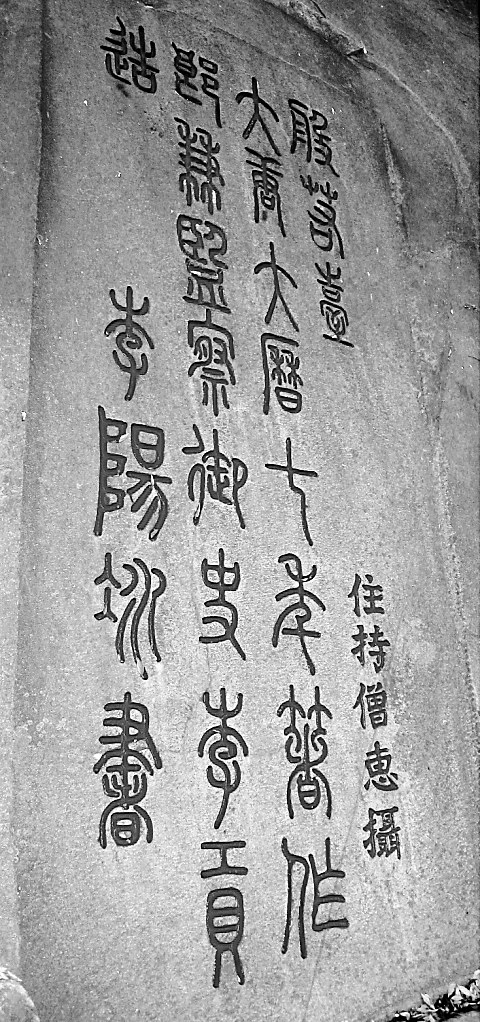 般若臺
住持僧惠攝
大唐大曆七年著作
郎兼監察御史李貢
造 李陽冰書